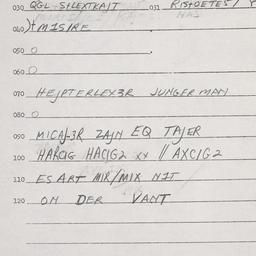 030 QGL S+LEXTKAJT 031
040 )+ MISIRE
050 O
060 O
070 HEJPTERLEX3R JUNGERMAN
080 O
090 MICAJ-3R ZAJN EQ TAJER
100 HARCIG HACIG2 XX // AXCIG2
110 ES ART MIR/MIX NIT
120 ON DER VANT